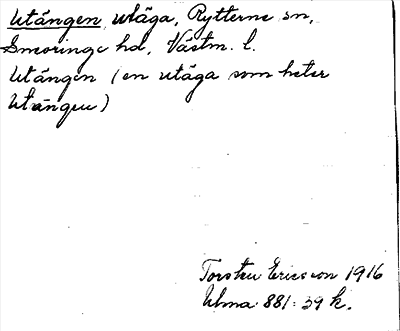 Utängen utäga, Rytterne sn,
Snevringe hd, Västm. l.
Utängen (en utäga som heter
Utängen)
Torsten Ericsson 1916
Ulma 881:39 k.